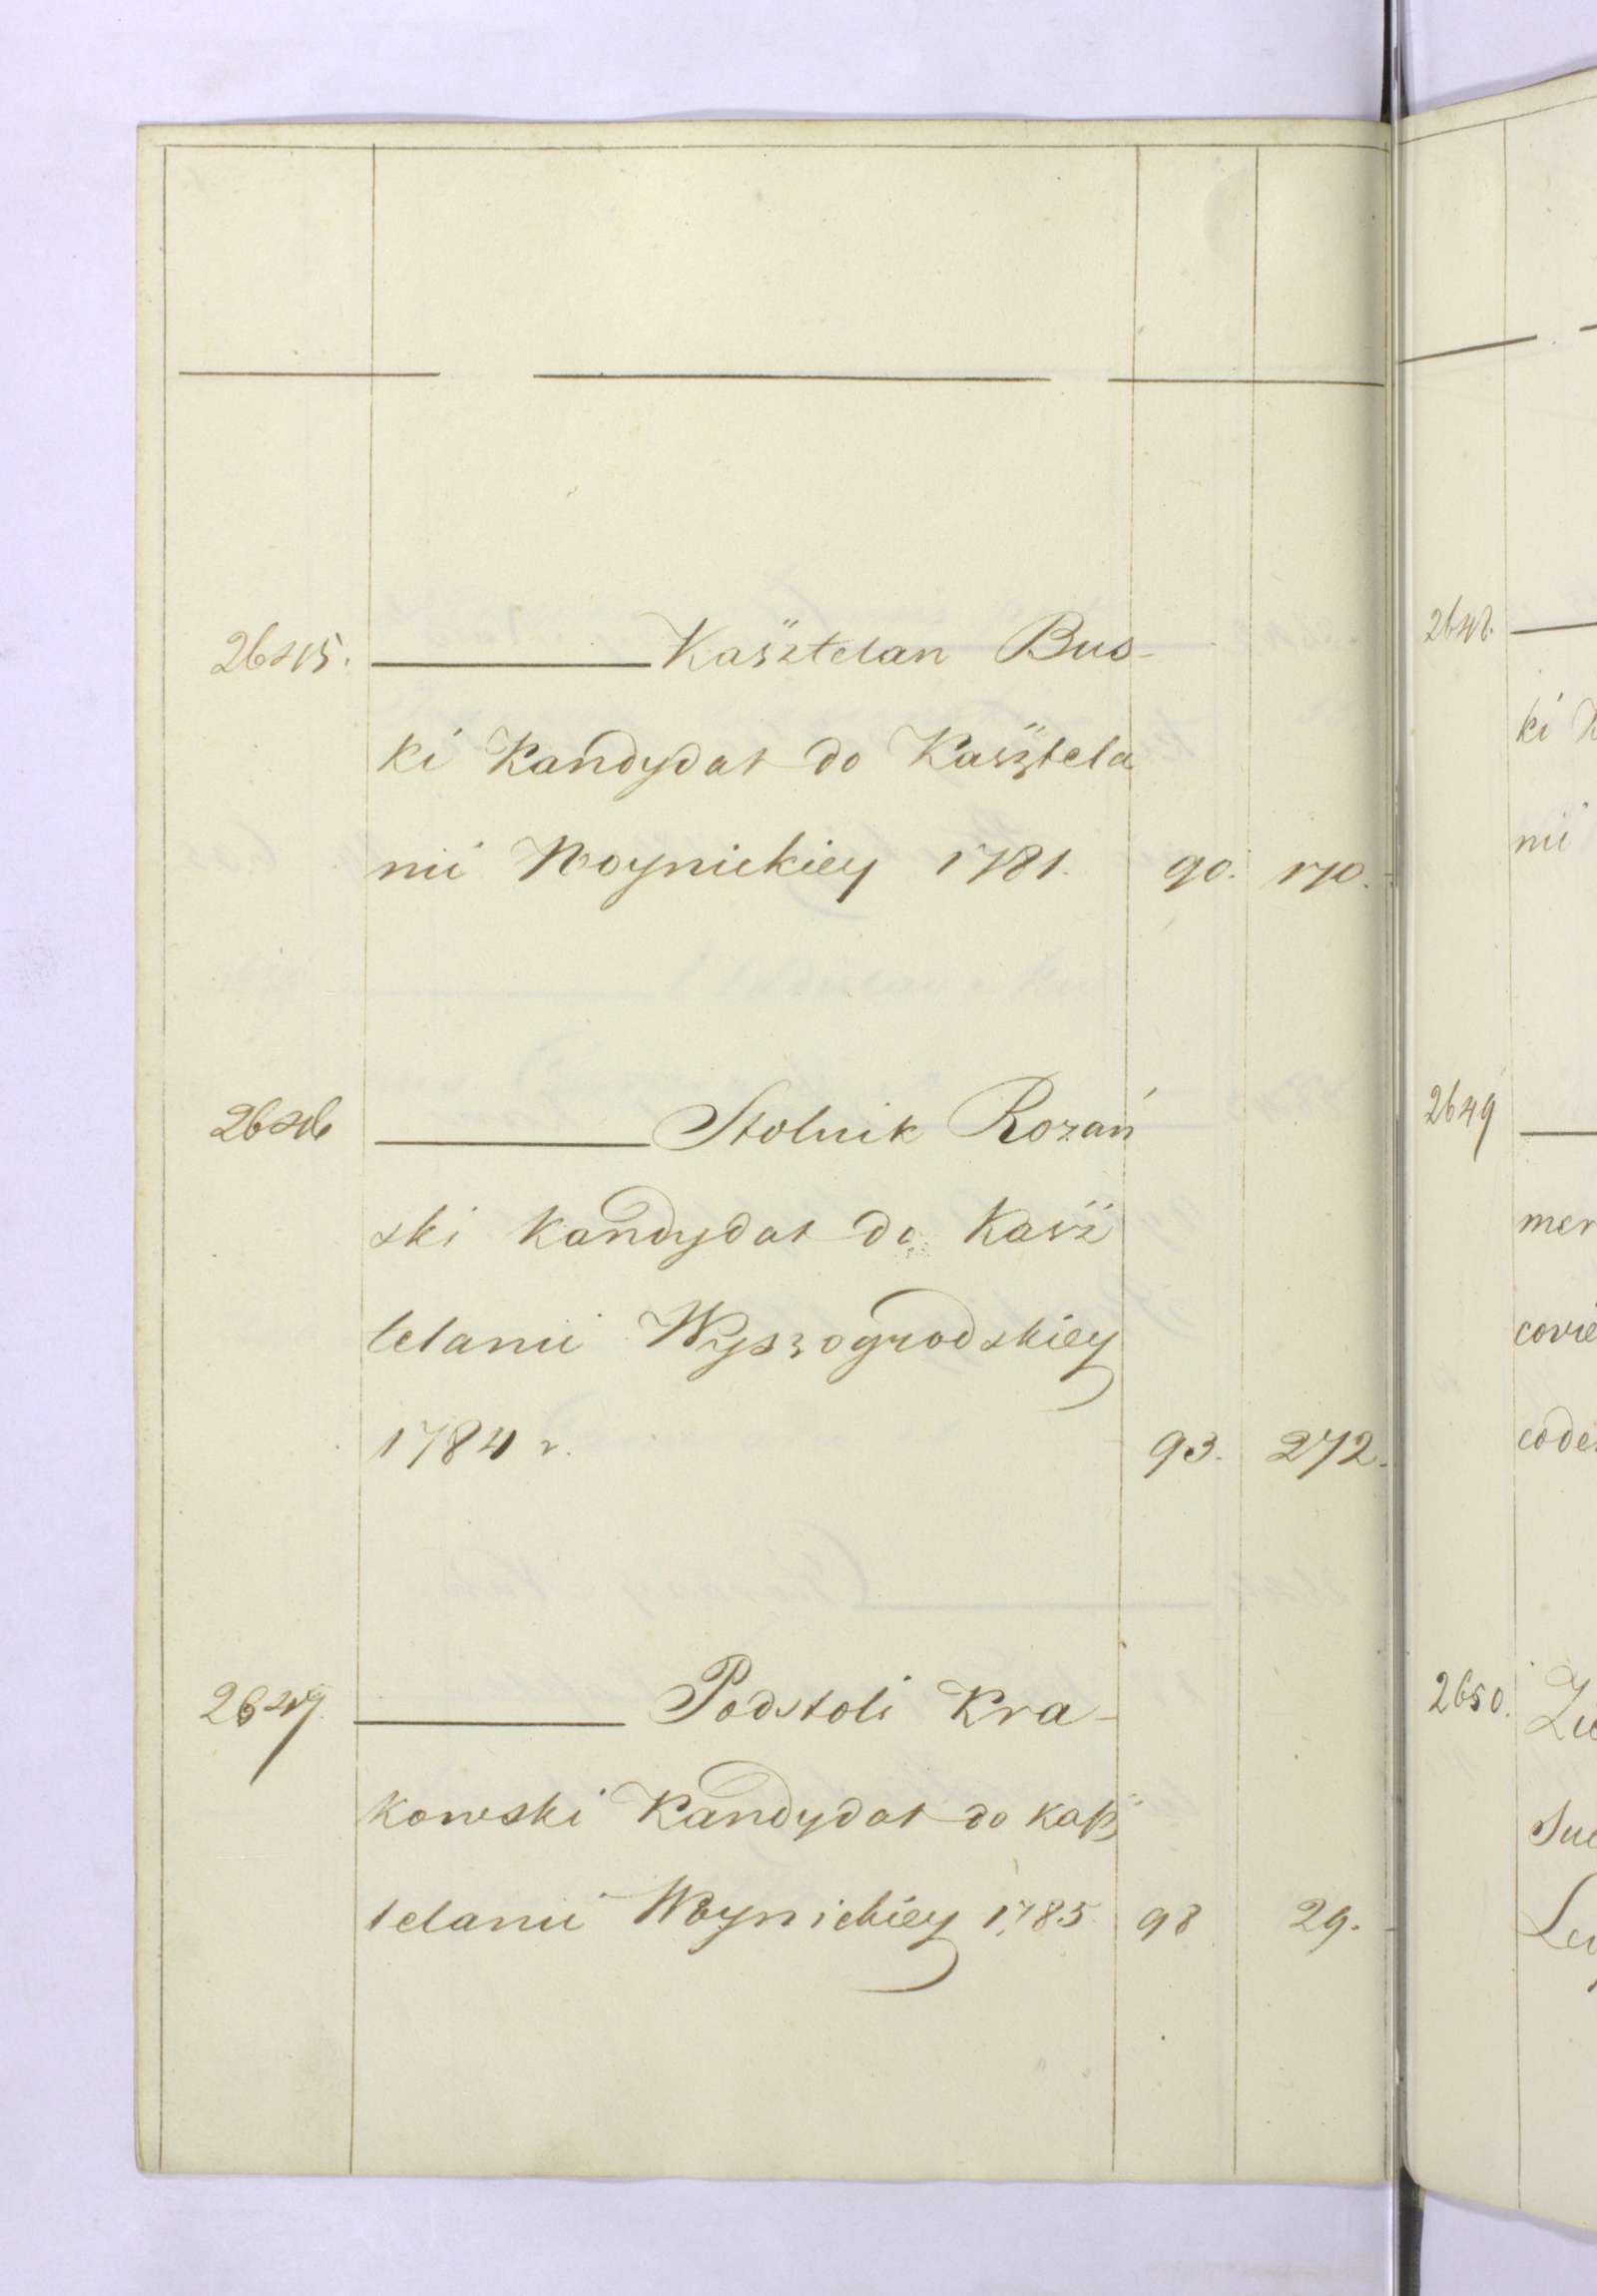 2645. ——— Kasztelan Bus-
ki Kandydat do Kasztela
nii Woynickiey 1781. 90. 170.
2646 ——— Stolnik Rozań
ski Kandydat do Kasz
telanii Wyszogrodskiey
1784 r. 93. 272.
2647 ——— Podstoli Kra-
kowski Kandydat do Kasz
telanii Woynickiey 1785. 98 29.
2648.
ki
nii
2649
mer
covie
code
2650.